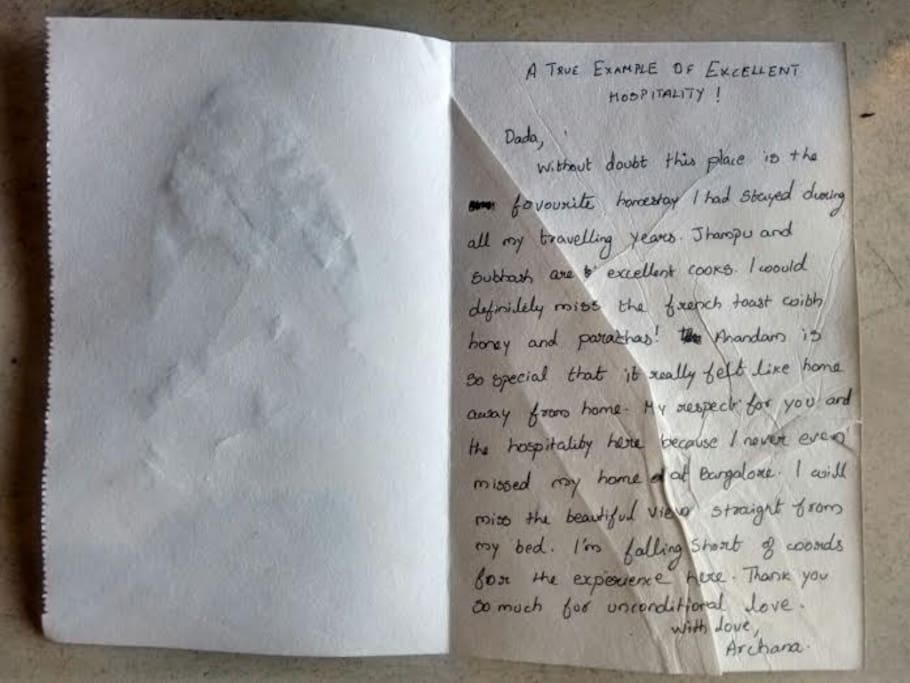 A TRUE EXAMPLE OF EXCELLENT
HOSPITALITY !
Dada,
Without doubt this place is the
favourite homestay I had stayed during
all my travelling years. Jhampu and
Subhash are excellent cooks. I would
definitely miss the french toast with
honey and parathas! Anandam is
so special that it really felt like home
away from home. My respect for you and
the hospitality here because I never even
missed my home at Bangalore. I will
miss the beautiful view straight from
my bed. I'm falling short of words
for the experience here. Thank you
so much for unconditional love.
With Love,
Archana.